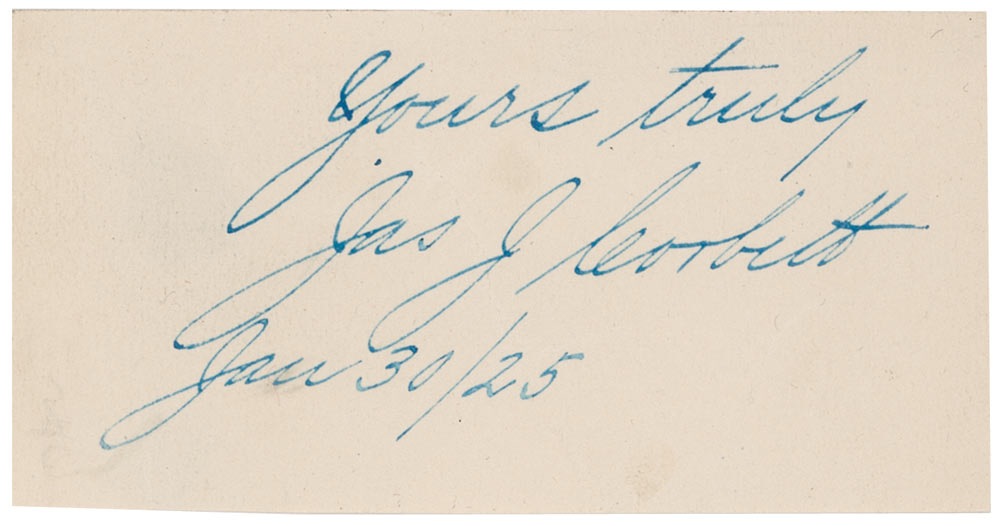 Yours truly
Jas J Corbett
Jan 30/25